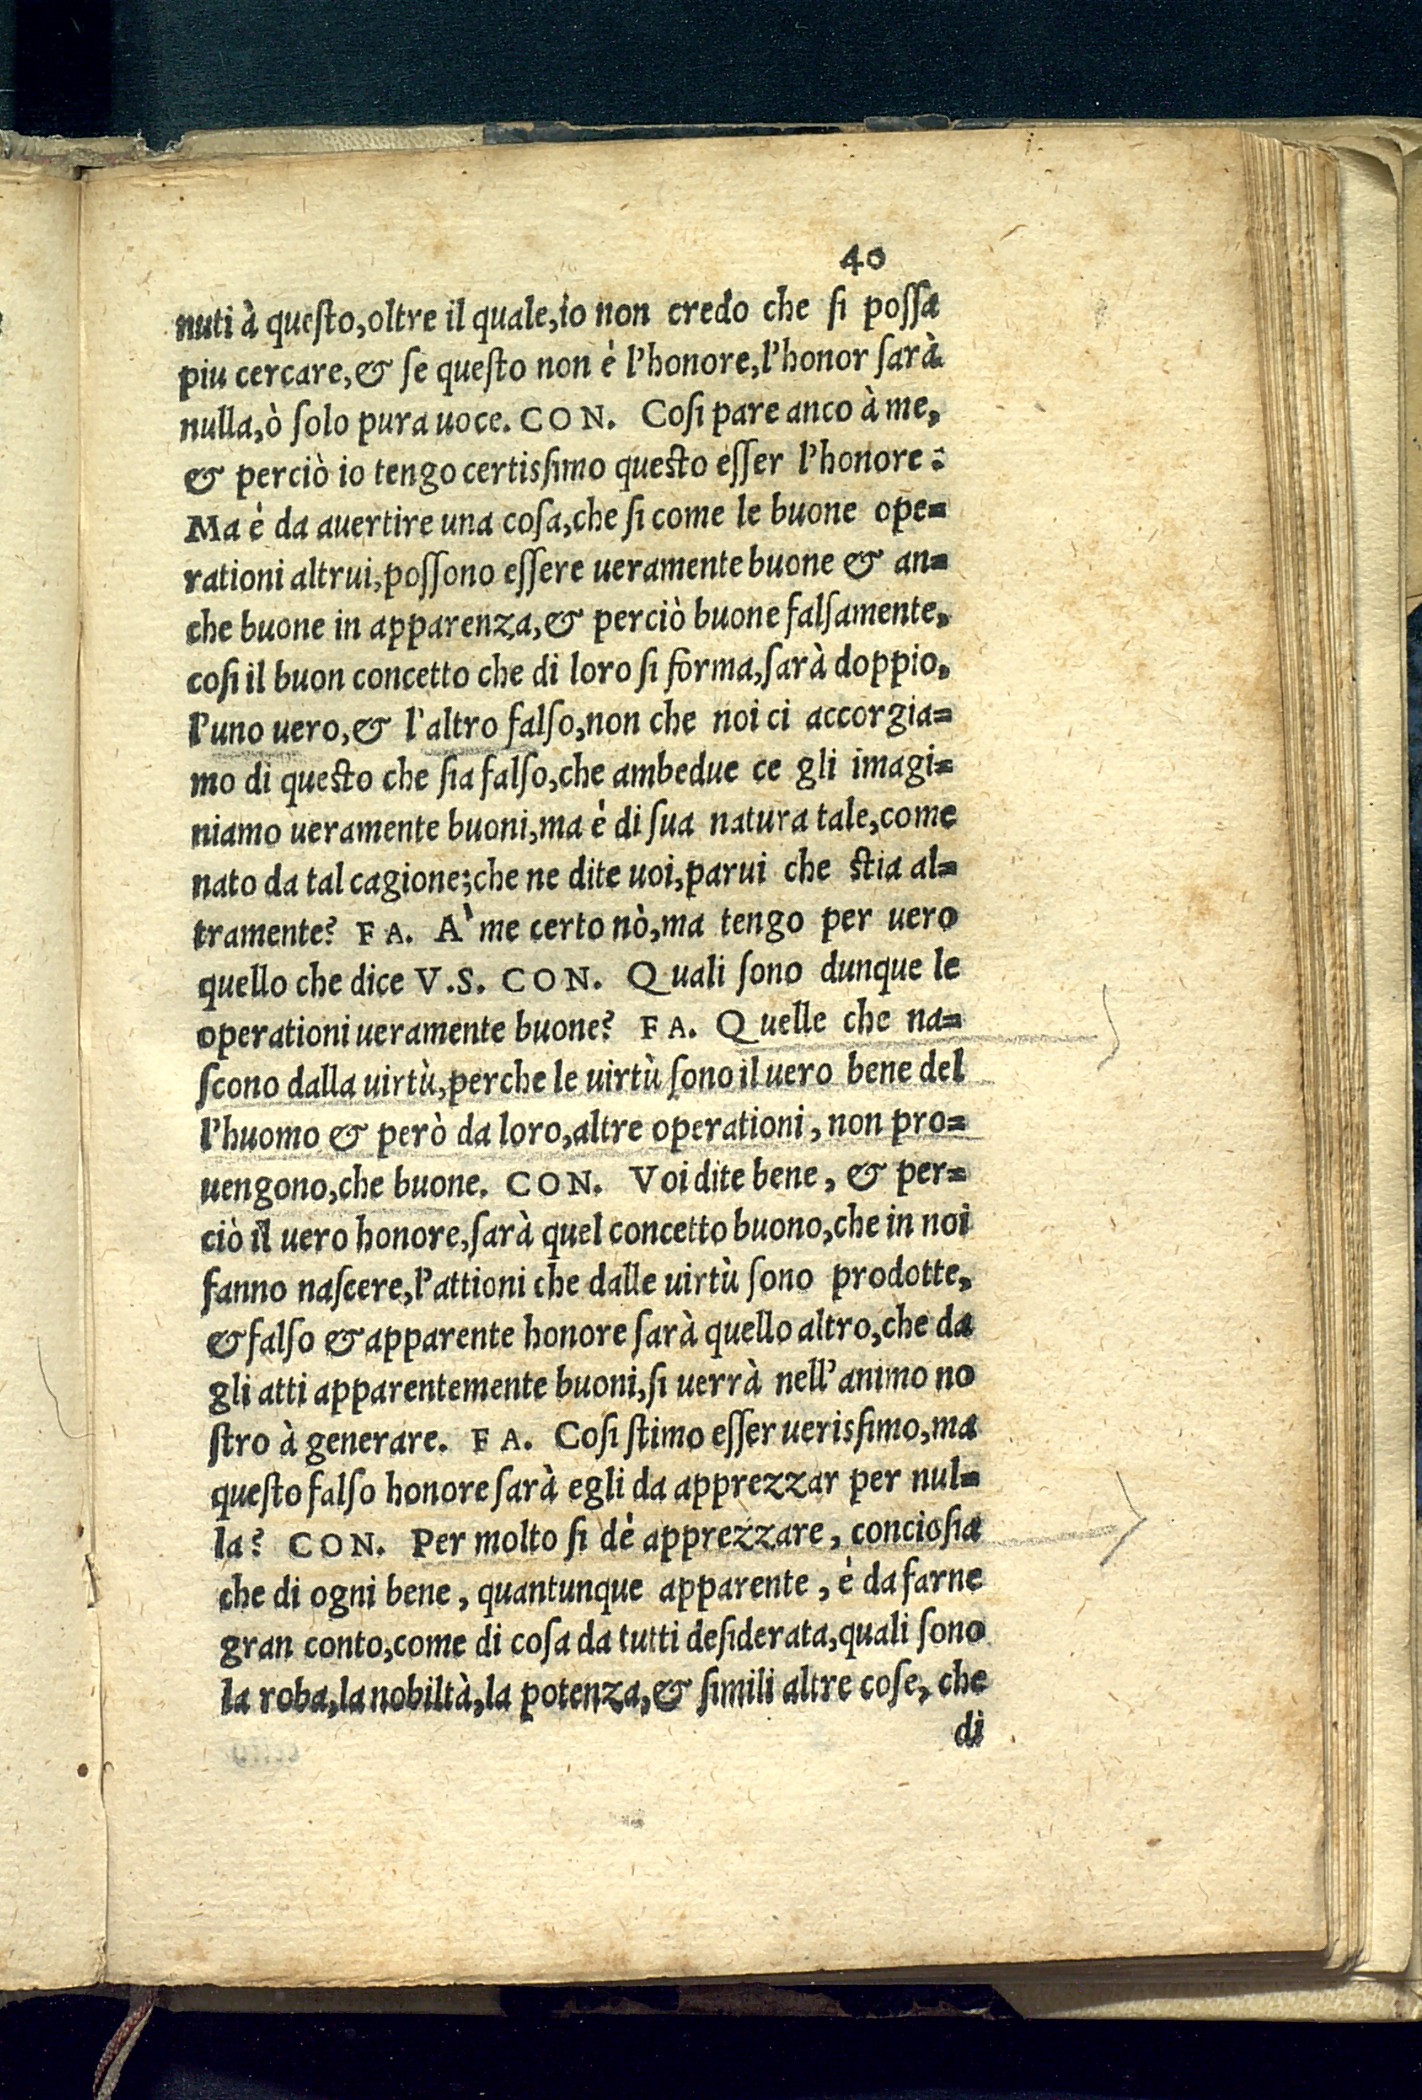 40
nuti à queſto, oltre il quale, io non credo che ſi poſſa
piu cercare, & ſe queſto non è l'honore, l'honor ſarà
nulla, ò ſolo pura uoce. CON. Coſi pare anco à me,
& perciò io tengo certisſimo queſto eſſer l'honore:
Ma è da auertire una coſa, che ſi come le buone ope=
rationi altrui, poſſono eſſere ueramente buone & an=
che buone in apparenza, & perciò buone falſamente,
coſi il buon concetto che di loro ſi forma, ſarà doppio,
l'uno uero, & l'altro falſo, non che noi ci accorgia=
mo di queſto che ſia falſo, che ambedue ce gli imagi=
niamo ueramente buoni, ma è di ſua natura tale, come
nato da tal cagione; che ne dite uoi, parui che ſtia al=
tramente? FA. A' me certo nò, ma tengo per uero
quello che dice V.S. CON. Quali ſono dunque le
operationi ueramente buone? FA. Quelle che na=
ſcono dalla uirtù, perche le uirtù ſono il uero bene del
l'huomo & però da loro, altre operationi, non pro=
uengono, che buone. CON. Voi dite bene, & per=
ciò il uero honore, ſarà quel concetto buono, che in noi
fanno naſcere, l'attioni che dalle uirtù ſono prodotte,
& falſo & apparente honore ſarà quello altro, che da
gli atti apparentemente buoni, ſi uerrà nell'animo no
ſtro à generare. FA. Coſi ſtimo eſſer uerisſimo, ma
queſto falſo honore ſarà egli da apprezzar per nul=
la? CON. Per molto ſi dè apprezzare, concioſia
che di ogni bene, quantunque apparente, è da farne
gran conto, come di coſa da tutti deſiderata, quali ſono
la roba, la nobiltà, la potenza, & ſimili altre coſe, che
di